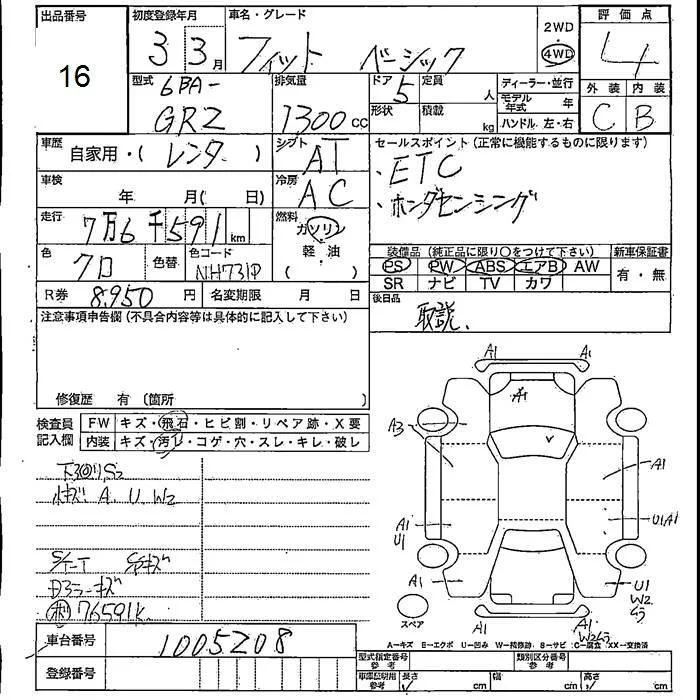 出品番号 初度登録年月 車名・グレード 2WD 評価点
16 3 3月 フィット ベーシック 4WD 4
型式 排気量 ドア 定員 人 ディーラー・並行 外装 内装
6BA- 5 形状 積載 kg モデル年式 年
GR2 1300cc ハンドル 左・右 C B
車歴 自家用・( レンタ ) シフト AT セールスポイント(正常に機能するものに限ります)
車検 年 月( 日) 冷房 AC ・ETC
・ホンダセンシング
走行 7万6千591km 燃料 ガソリン
軽・油
( )
色 クロ 色替 色コード NH731P
装備品(純正品に限り○をつけて下さい) 新車保証書
PS PW ABS エアB AW 有・無
SR ナビ TV カワ
R券 8,950円 名変期限 月 日 後日品
取説.
注意事項申告欄(不具合内容等は具体的に記入して下さい)
修復歴 有(箇所
検査員記入欄 FW キズ・飛石・ヒビ割・リペア跡・X要
内装 キズ・汚れ・コゲ・穴・スレ・キレ・破レ
A1 A1
A1
A3 A1
A1 U1 U1A1
A1 U1 W2
スペア A1 A1
A…キズ E…エクボ U…凹み W…補修跡 S…サビ C…腐食 XX…交換済
キズ A. U. W2
76591K
車台番号 1005208
登録番号
型式指定番号 参考 類別区分番号 参考
車庫証明用 参考 長さ cm 幅 cm 高さ cm